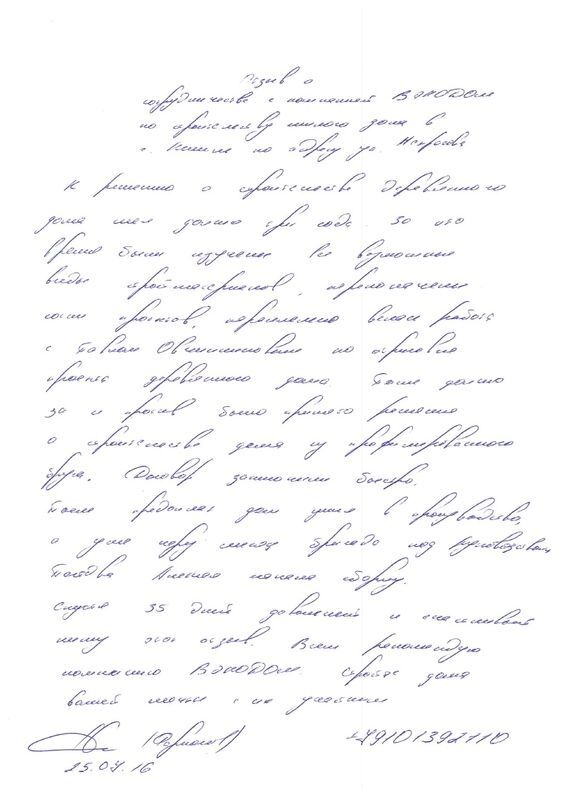 Отзыв о
сотрудничестве с компанией ВЭКОДОМ
по строительству жилого дома в
г. Кинешме по адресу ул. Некрасова
К решению о строительстве деревянного
дома шел долго три года. За это
время были изучены все возможные
виды стройматериалов,
проектов, параллельно велась работа
с Павлом Овчинниковым по
проекта деревянного дома. После долгих
за и против было принято решение
о строительстве дома из профилированного
бруса. Договор заключили быстро.
После предоплаты дом ушел в производство,
а уже через месяц бригада под руководством
Алексея начала сборку.
Спустя 35 дней довольный и счастливый
пишу этот отзыв. Всем рекомендую
компанию ВЭКОДОМ. Стройте дома
вашей мечты с их участием
+79101392110
25.07.16